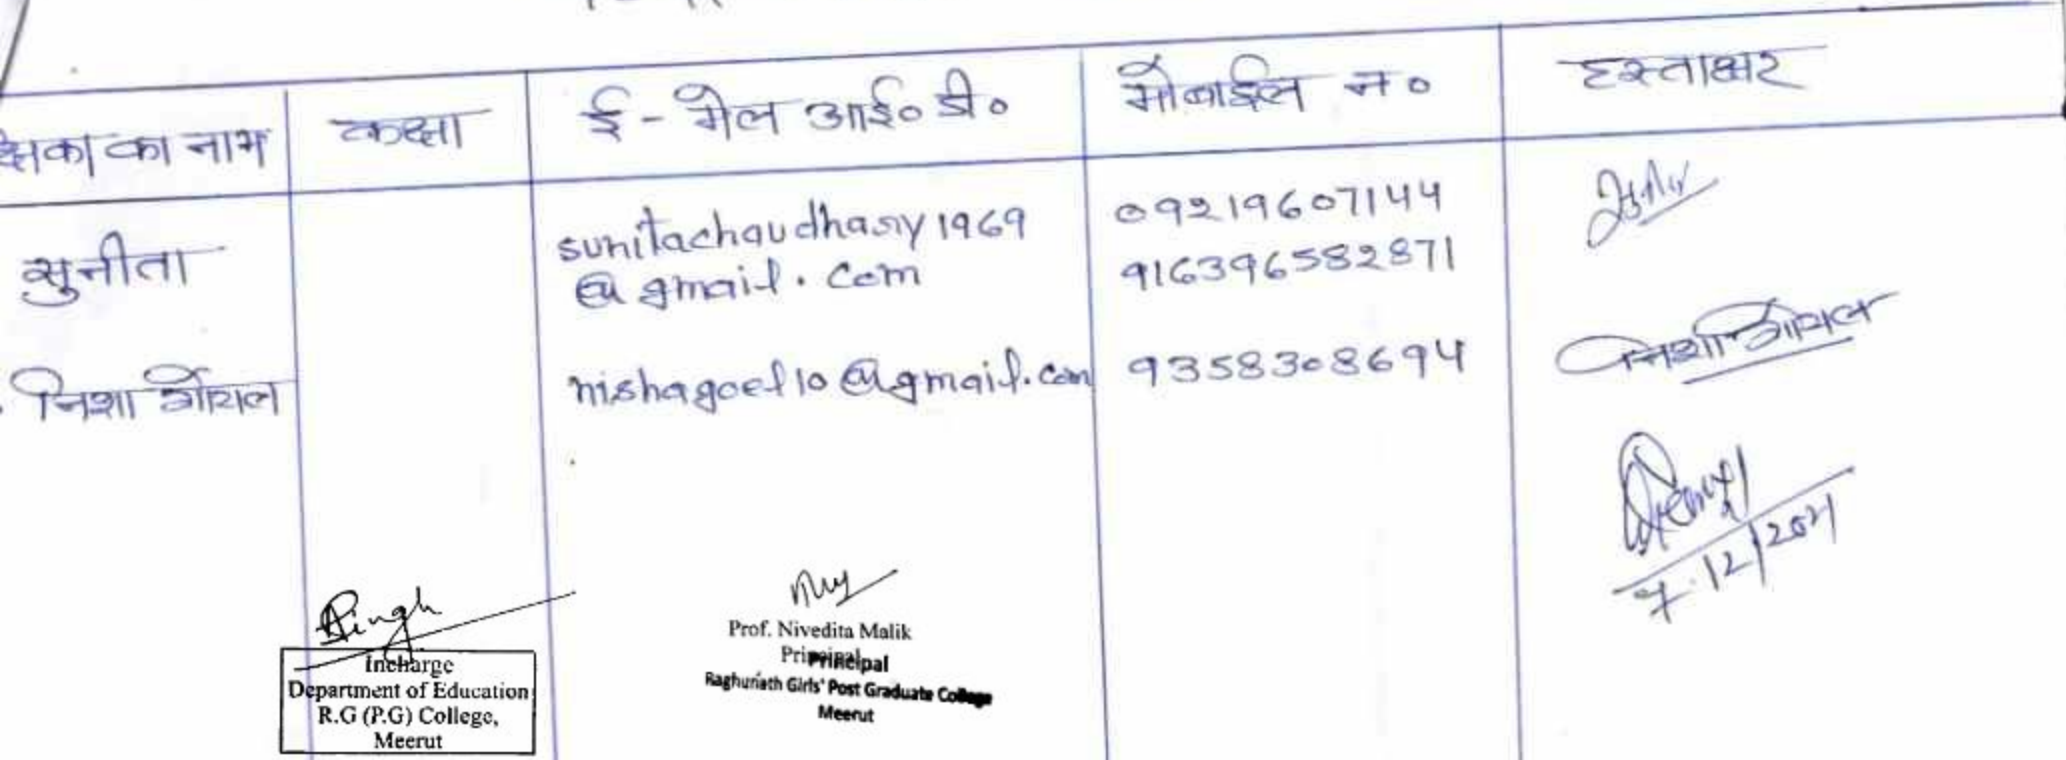 क्षिका का नाम कक्षा ई-मेल आई० डी० मोबाईल न० हस्ताक्षर
सुनीता sunitachaudhary1969 09219607144
@gmail.com 916396582871
निशा गोयल nishagoel10@gmail.com 9358308694 निशा गोयल
7.12/2021
Singh
Incharge
Department of Education
R.G (P.G) College,
Meerut
Prof. Nivedita Malik
Principal
Principal
Raghunath Girls' Post Graduate College
Meerut